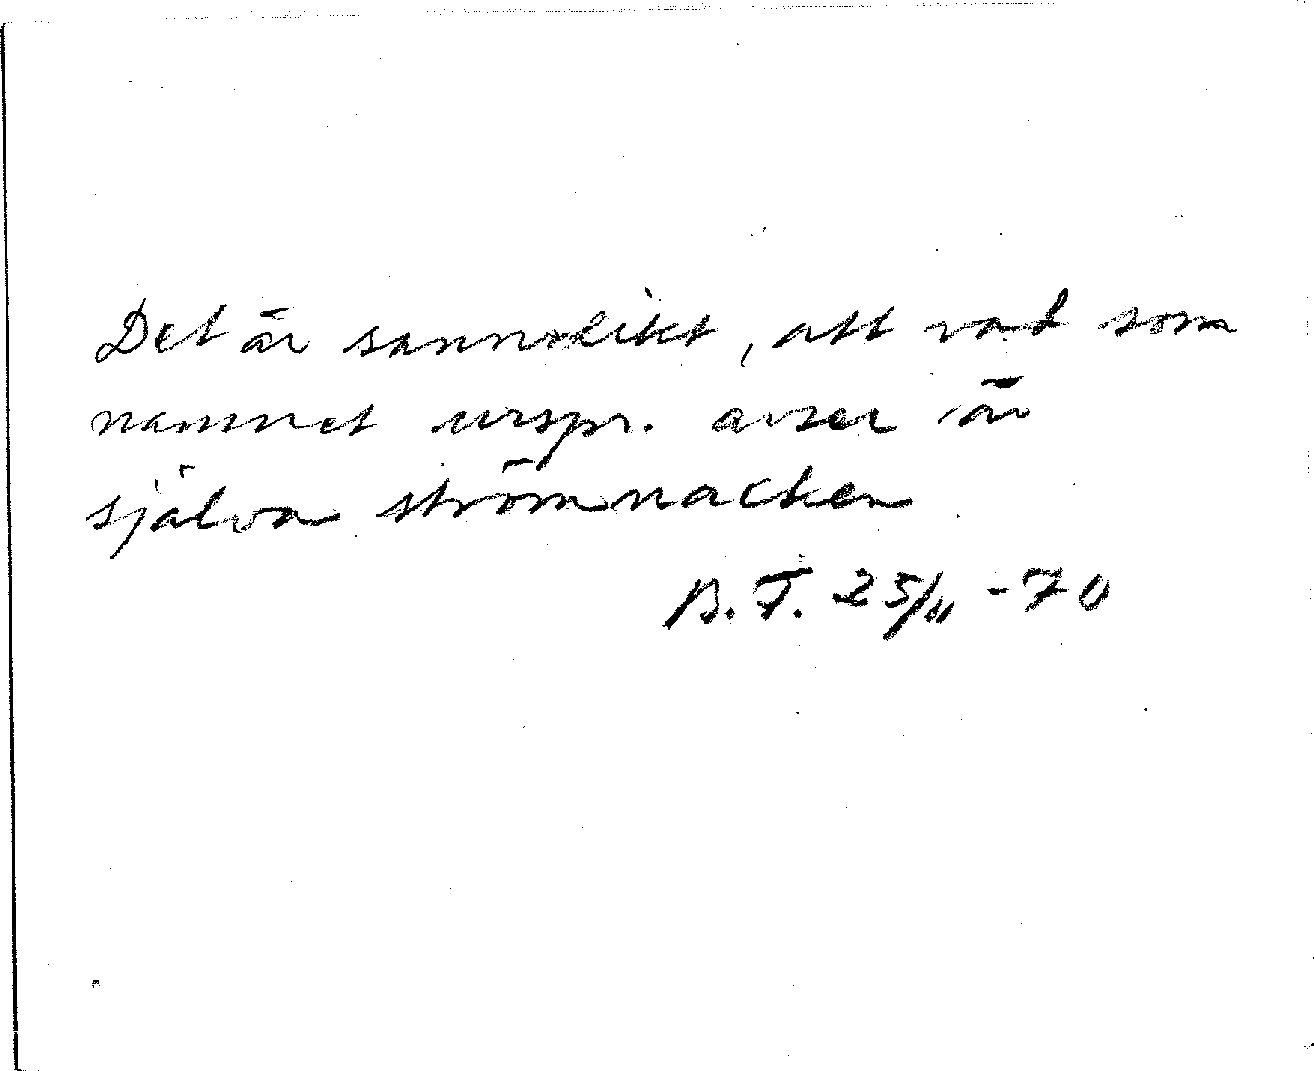 Det är sannolikt, att vad som
namnet urspr. avser är
själva strömnacken
B.T. 25/11 -70